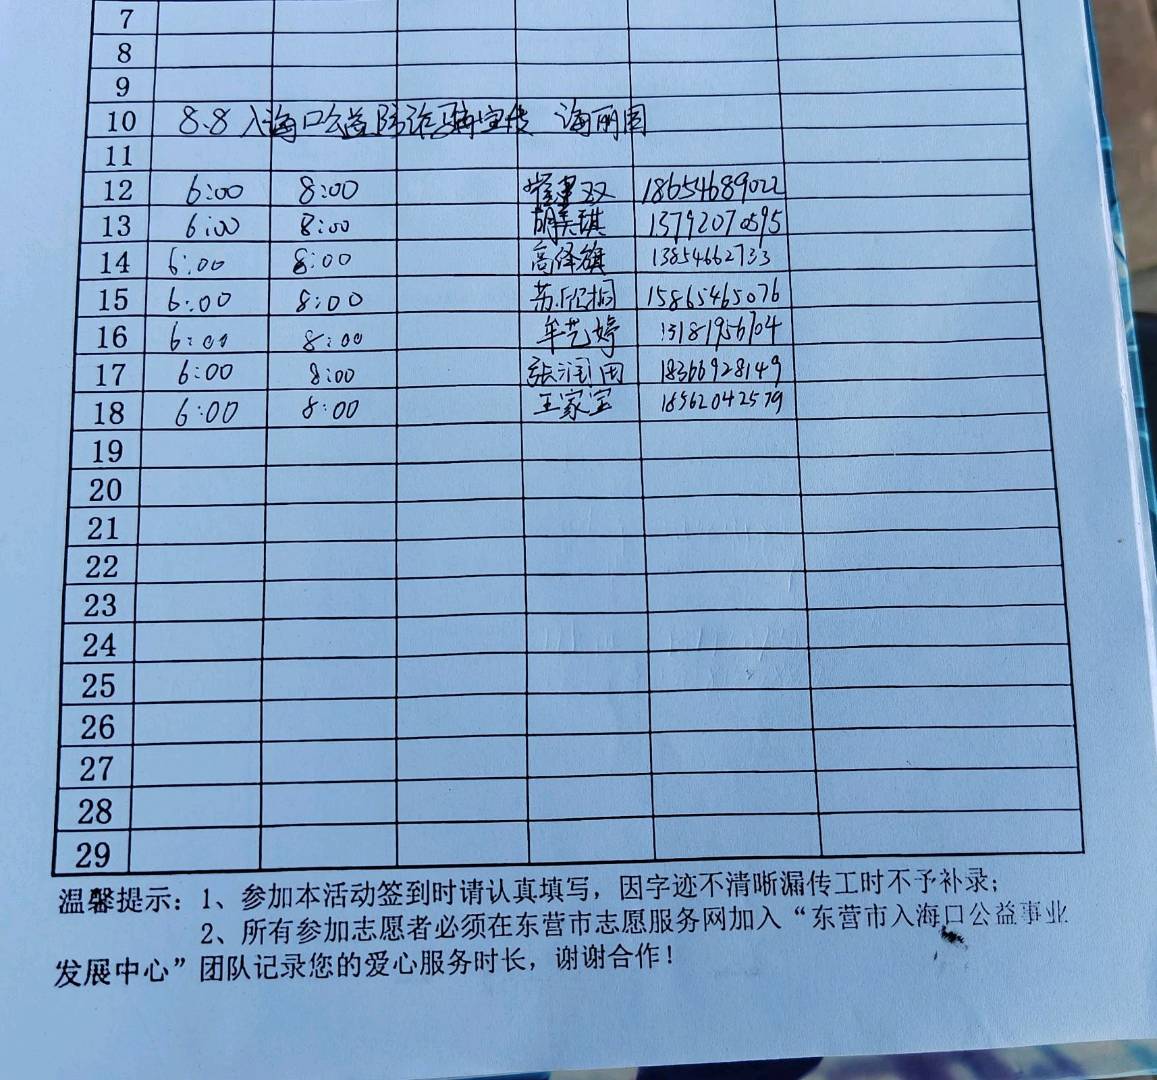 7
8
9
10 8.8 入海口公益防诈骗宣传 海丽园
11
12 6:00 8:00 崔建双 18654689022
13 6:00 8:00 胡美琪 13792070595
14 6:00 8:00 高泽旗 13854662733
15 6:00 8:00 苏欣桐 15865465076
16 6:00 8:00 牟艺婷 13181956704
17 6:00 8:00 张润田 18366928149
18 6:00 8:00 王家宝 18562042579
19
20
21
22
23
24
25
26
27
28
29
温馨提示：1、参加本活动签到时请认真填写，因字迹不清晰漏传工时不予补录；
2、所有参加志愿者必须在东营市志愿服务网加入“东营市入海口公益事业
发展中心”团队记录您的爱心服务时长，谢谢合作！